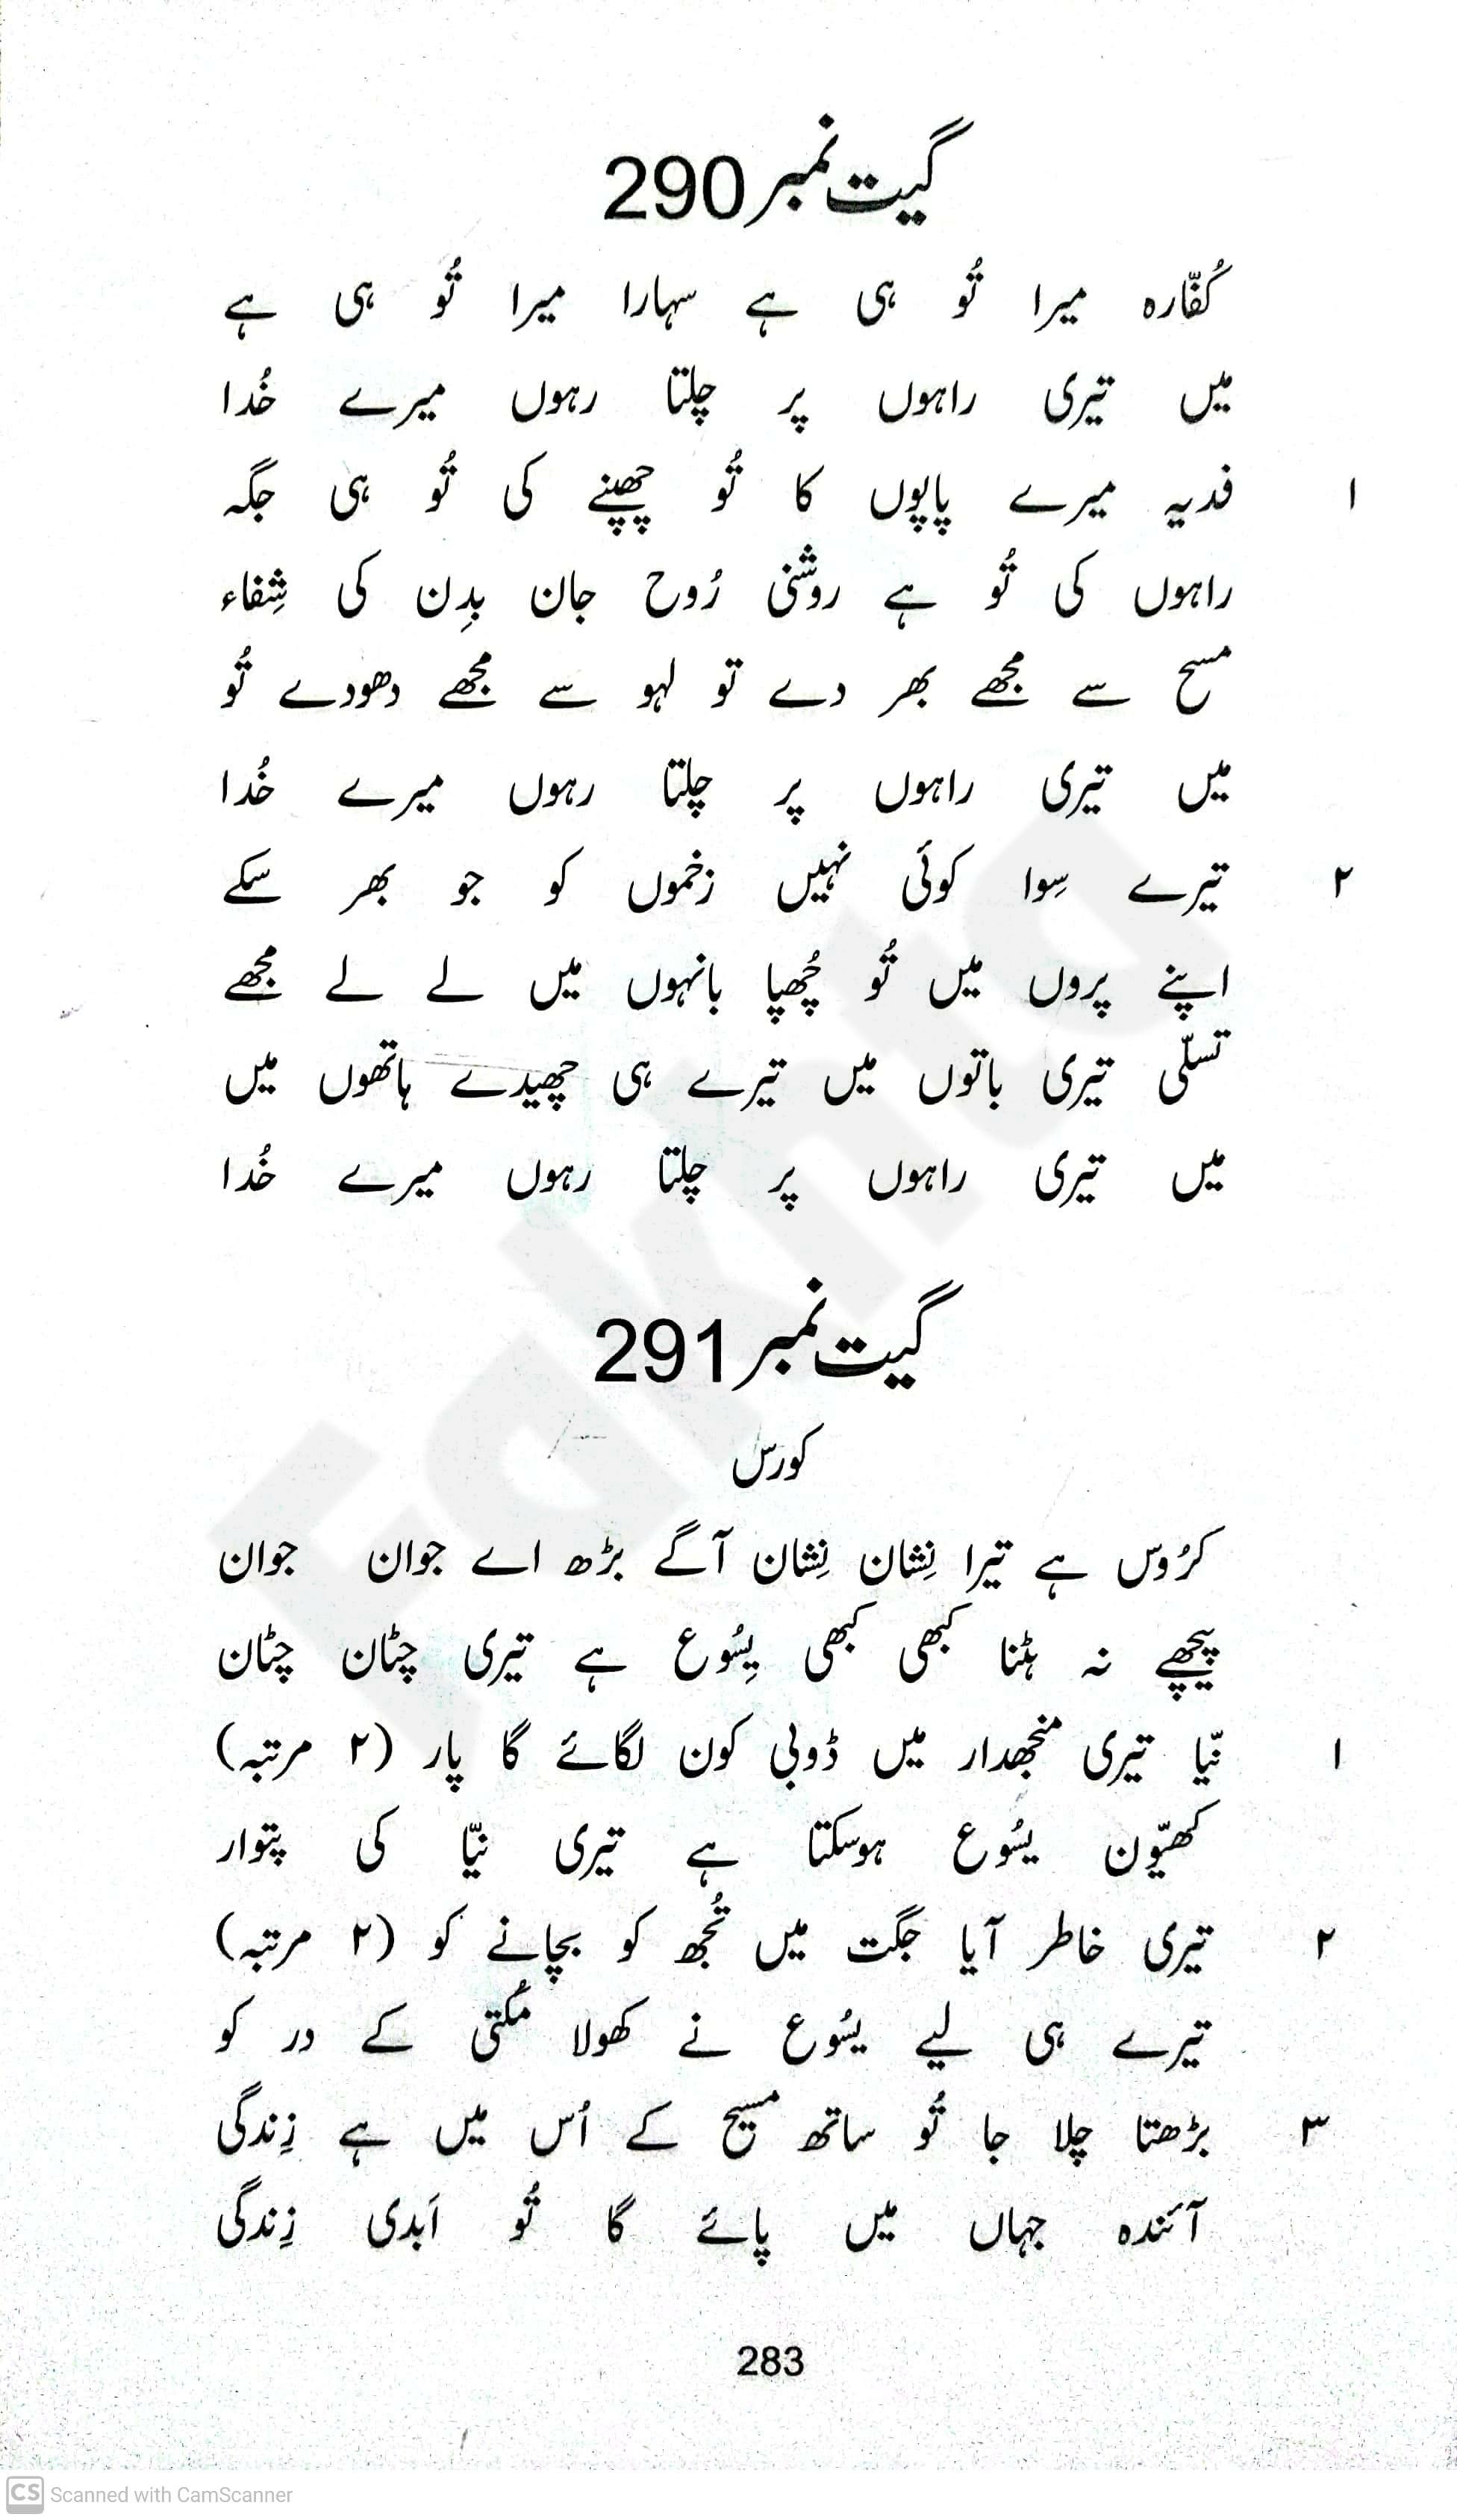 گیت نمبر 290
کُفّارہ میرا تُو ہی ہے سہارا میرا تُو ہی ہے
میں تیری راہوں پر چلتا رہوں میرے خُدا
۱ فدیہ میرے پاپوں کا تُو چھپنے کی تُو ہی جگہ
راہوں کی تُو ہے روشنی رُوح جان بدِن کی شِفاء
مسح سے مجھے بھر دے تو لہو سے مجھے دھودے تُو
میں تیری راہوں پر چلتا رہوں میرے خُدا
۲ تیرے سِوا کوئی نہیں زخموں کو جو بھر سکے
اپنے پروں میں تُو چُھپا بانہوں میں لے لے مجھے
تسلّی تیری باتوں میں تیرے ہی چھیدے ہاتھوں میں
میں تیری راہوں پر چلتا رہوں میرے خُدا
گیت نمبر 291
کورس
کرُوس ہے تیرا نِشان نِشان آگے بڑھ اے جوان جوان
پیچھے نہ ہٹنا کبھی کبھی یِسُوع ہے تیری چٹان چٹان
۱ نّیا تیری منجھدار میں ڈوبی کون لگائے گا پار (۲ مرتبہ)
کھیّون یسُوع ہوسکتا ہے تیری نیّا کی پتوار
۲ تیری خاطر آیا جگت میں تُجھ کو بچانے کو (۲ مرتبہ)
تیرے ہی لیے یسُوع نے کھولا مُکتی کے در کو
۳ بڑھتا چلا جا تُو ساتھ مسیح کے اُس میں ہے زِندگی
آئندہ جہاں میں پائے گا تُو اَبدی زِندگی
283
Fakhta
CS Scanned with CamScanner